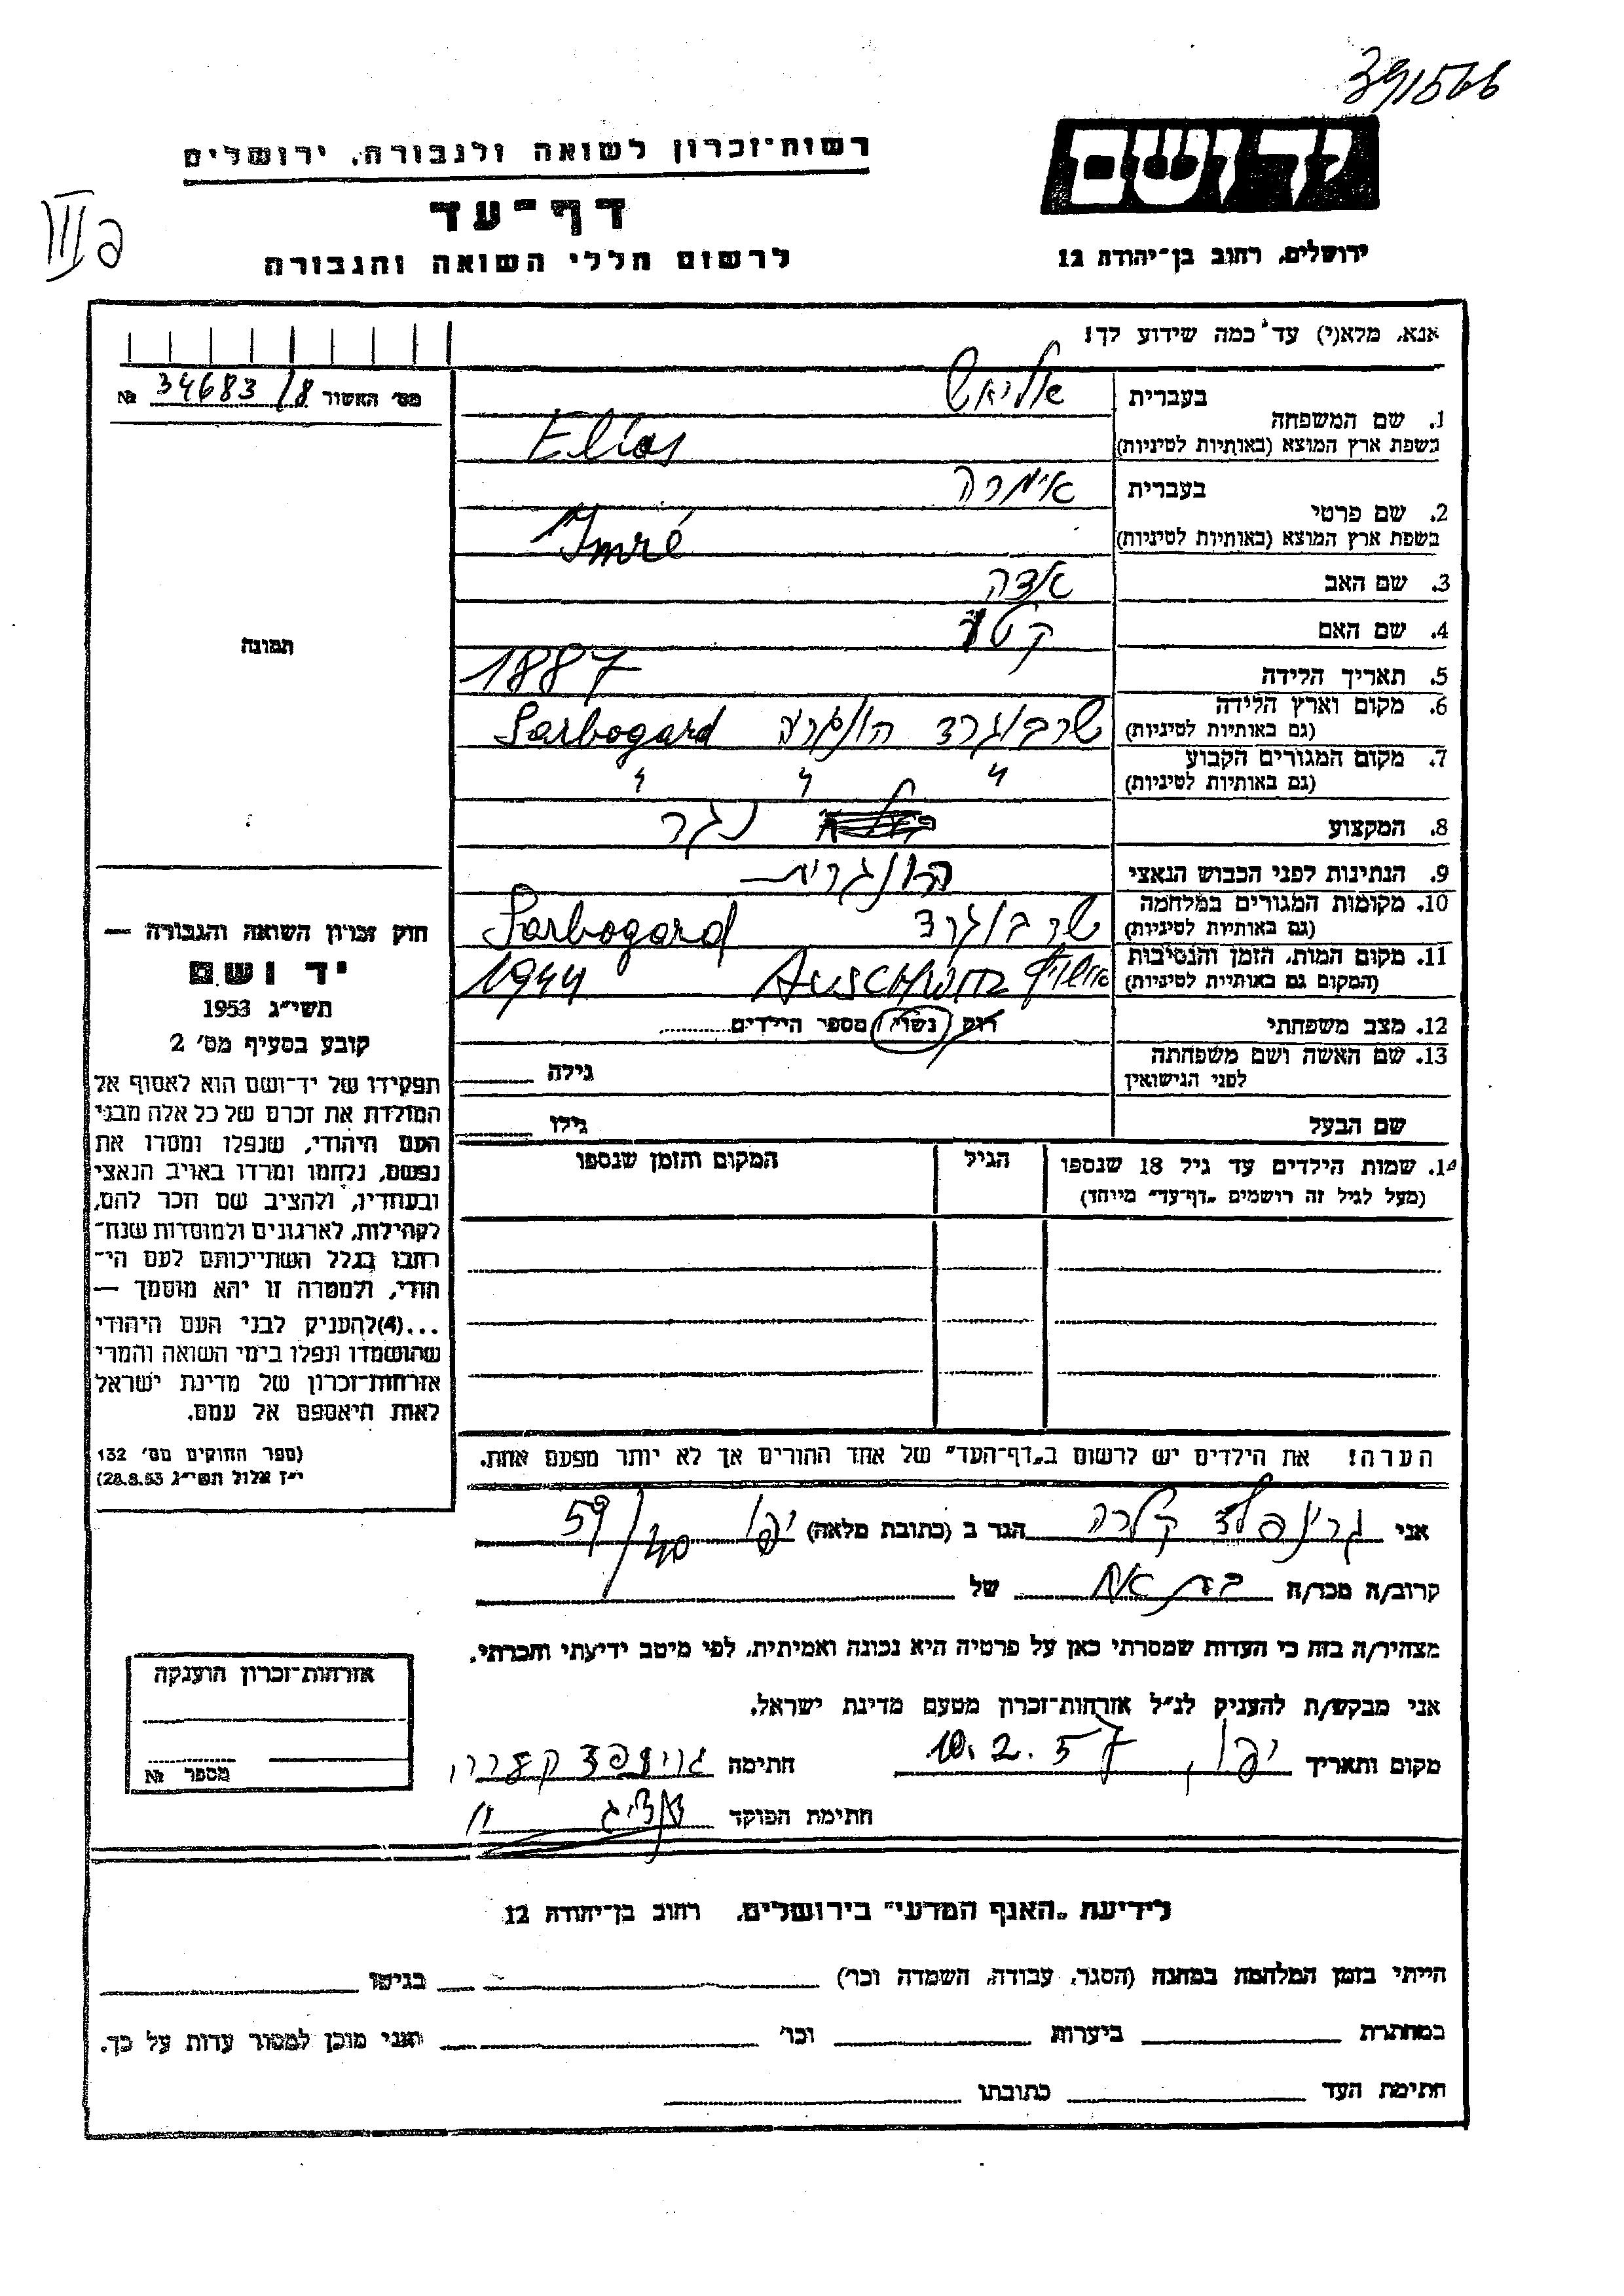 391566
רשות־זכרון לשואה ולגבורה, ירושלים
יד ושם
דף־עד
III
לרשום חללי השואה והגבורה
ירושלים, רחוב בן־יהודה 12
אנא, מלא(י) עד כמה שידוע לך!
מס׳ האשור 34683/8 №
בעברית אליאש
1. שם המשפחה
בשפת ארץ המוצא (באותיות לטיניות) Eliás
בעברית אימרה
2. שם פרטי
בשפת ארץ המוצא (באותיות לטיניות) Imré
3. שם האב
4. שם האם
תמונה
5. תאריך הלידה 1887
6. מקום וארץ הלידה
(גם באותיות לטיניות) שרבוגרד הונגריה Sarbogard
7. מקום המגורים הקבוע
(גם באותיות לטיניות) " " "
8. המקצוע נגר
9. הנתינות לפני הכבוש הנאצי הונגרית
10. מקומות המגורים במלחמה
(גם באותיות לטיניות) שרבוגרד Sarbogard
11. מקום המות, הזמן והנסיבות
(המקום גם באותיות לטיניות) 1944
12. מצב משפחתי רווק נשוי מספר הילדים
13. שם האשה ושם משפחתה
לפני הנישואין גילה
שם הבעל גילו
14. שמות הילדים עד גיל 18 שנספו הגיל המקום והזמן שנספו
(מעל לגיל זה רושמים „דף־עד״ מייחד)
חוק זכרון השואה והגבורה —
יד ושם
תשי״ג 1953
קובע בסעיף מס׳ 2
תפקידו של יד־ושם הוא לאסוף אל
המולדת את זכרם של כל אלה מבני
העם היהודי, שנפלו ומסרו את
נפשם, נלחמו ומרדו באויב הנאצי
ובעוזריו, ולהציב שם וזכר להם,
לקהילות, לארגונים ולמוסדות שנח־
רבו בגלל השתייכותם לעם הי־
הודי, ולמטרה זו יהא מוסמך —
...(4) להעניק לבני העם היהודי
שהושמדו ונפלו בימי השואה והמרי
אזרחות־זכרון של מדינת ישראל
לאות היאספם אל עמם.
(ספר החוקים מס׳ 132
י״ז אלול תשי״ג 28.8.53)
הערה! את הילדים יש לרשום ב„דף־העד״ של אחד ההורים אך לא יותר מפעם אחת.
אני גרינפלד קלרה הגר ב (כתובת מלאה) יפו 59/40
קרוב/ה מכר/ה בת אח של
מצהיר/ה בזה כי העדות שמסרתי כאן על פרטיה היא נכונה ואמיתית, לפי מיטב ידיעתי והכרתי.
אני מבקש/ת להעניק לנ״ל אזרחות־זכרון מטעם מדינת ישראל.
מקום ותאריך יפו, 10.2.57 חתימה
חתימת הפוקד
אזרחות־זכרון הוענקה
מספר №
לידיעת „האגף המדעי״ בירושלים, רחוב בן־יהודה 12
הייתי בזמן המלחמה במחנה (הסגר, עבודה, השמדה וכו׳) בגיטו
במחתרת ביערות וכו׳ ואני מוכן למסור עדות על כך.
חתימת העד כתובתו